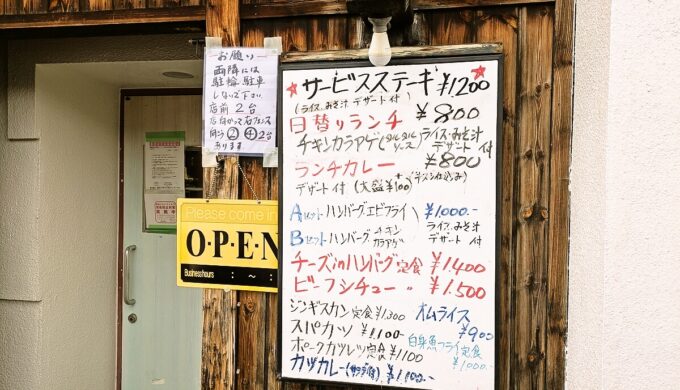 お願い
両隣には
駐輪駐車
しないで下さい
店前2台
②④2台
あります
Please come in
OPEN
Business hours : ~ :
★サービスステーキ ¥1200★
(ライス、みそ汁 デザート 付)
日替りランチ ¥800
チキンカラアゲ(タルタルソース) ライス・みそ汁 デザート 付
ランチカレー ¥800
デザート付 (大盛 +¥100)
Aセット ハンバーグエビフライ ¥1000.-
Bセット ハンバーグ チキンカラアゲ ライス・みそ汁 デザート 付
チーズinハンバーグ定食 ¥1.400
ビーフシチュー 〃 ¥1.500
ジンギスカン定食 ¥1,300 オムライス ¥900
スパカツ ¥1.100.-
ポークカツレツ定食 ¥1100 白身魚フライ定食 ¥1,000.-
カツカレー(サラダ付) ¥1,100.-